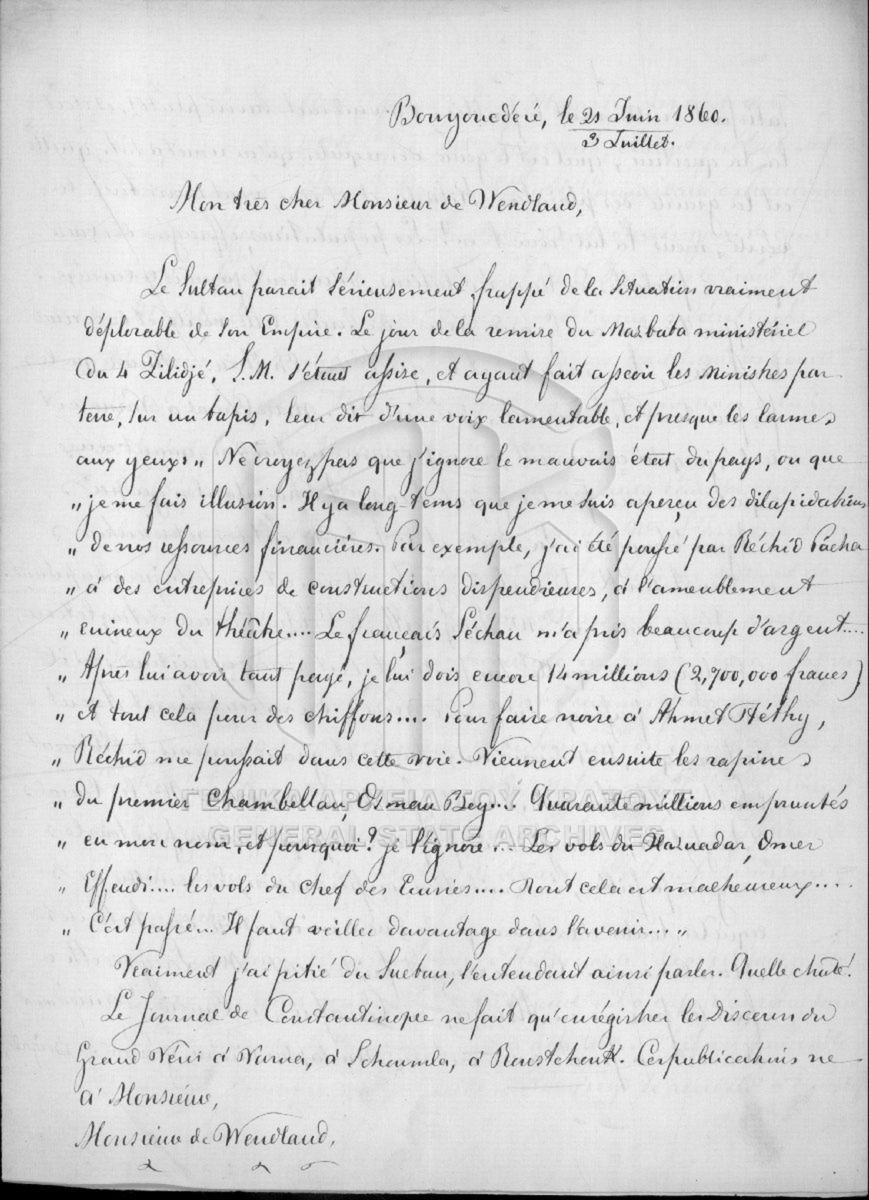 Bouyoucdéré, le 21 Juin 1860.
3 Juillet.
Mon très cher Monsieur de Wendland,
Le Sultan parait sérieusement frappé de la situation vraiment
déplorable de son Empire. Le jour de la remise du Mazbata ministériel
du 4 Zilidjé, S.M. s'étant assise, et ayant fait asseoir les Ministres par
terre, sur un tapis, leur dit d'une voix lamentable, et presque les larmes
aux yeux: „ Ne croyez pas que j'ignore le mauvais état du pays, ou que
„ je me fais illusion. Il y a long-tems que je me suis aperçu des dilapidations
„ de nos ressources financières. Par exemple, j'ai été poussé par Réchid Pacha
„ à des entreprises de constructions dispendieuses, à l'ameublement
„ ruineux du théâtre.... Le français Séchan m'a pris beaucoup d'argent....
„ Après lui avoir tant payé, je lui dois encore 14 millions (2,700,000 francs)
„ et tout cela pour des chiffons.... Pour faire noire à Ahmet Féthy,
„ Réchid me poussait dans cette voie. Viennent ensuite les rapines
„ du premier Chambellan, Osman Bey.... Quarante millions empruntés
„ en mon nom, et pourquoi? je l'ignore.... Les vols du Haznadar, Omer
„ Effendi.... les vols du chef des Ecuries.... Tout cela est malheureux....
„ C'est passé... Il faut veiller davantage dans l'avenir.... „
Vraiment j'ai pitié du Sultan, l'entendant ainsi parler. Quelle chûte!
Le Journal de Constantinople ne fait qu'enrégistrer les Discours du
Grand Vézir à Varna, à Schoumla, à Roustchouk. Ces publications ne
à Monsieur,
Monsieur de Wendland,
ΓΕΝΙΚΑ ΑΡΧΕΙΑ ΤΟΥ ΚΡΑΤΟΥΣ
GENERAL STATE ARCHIVES